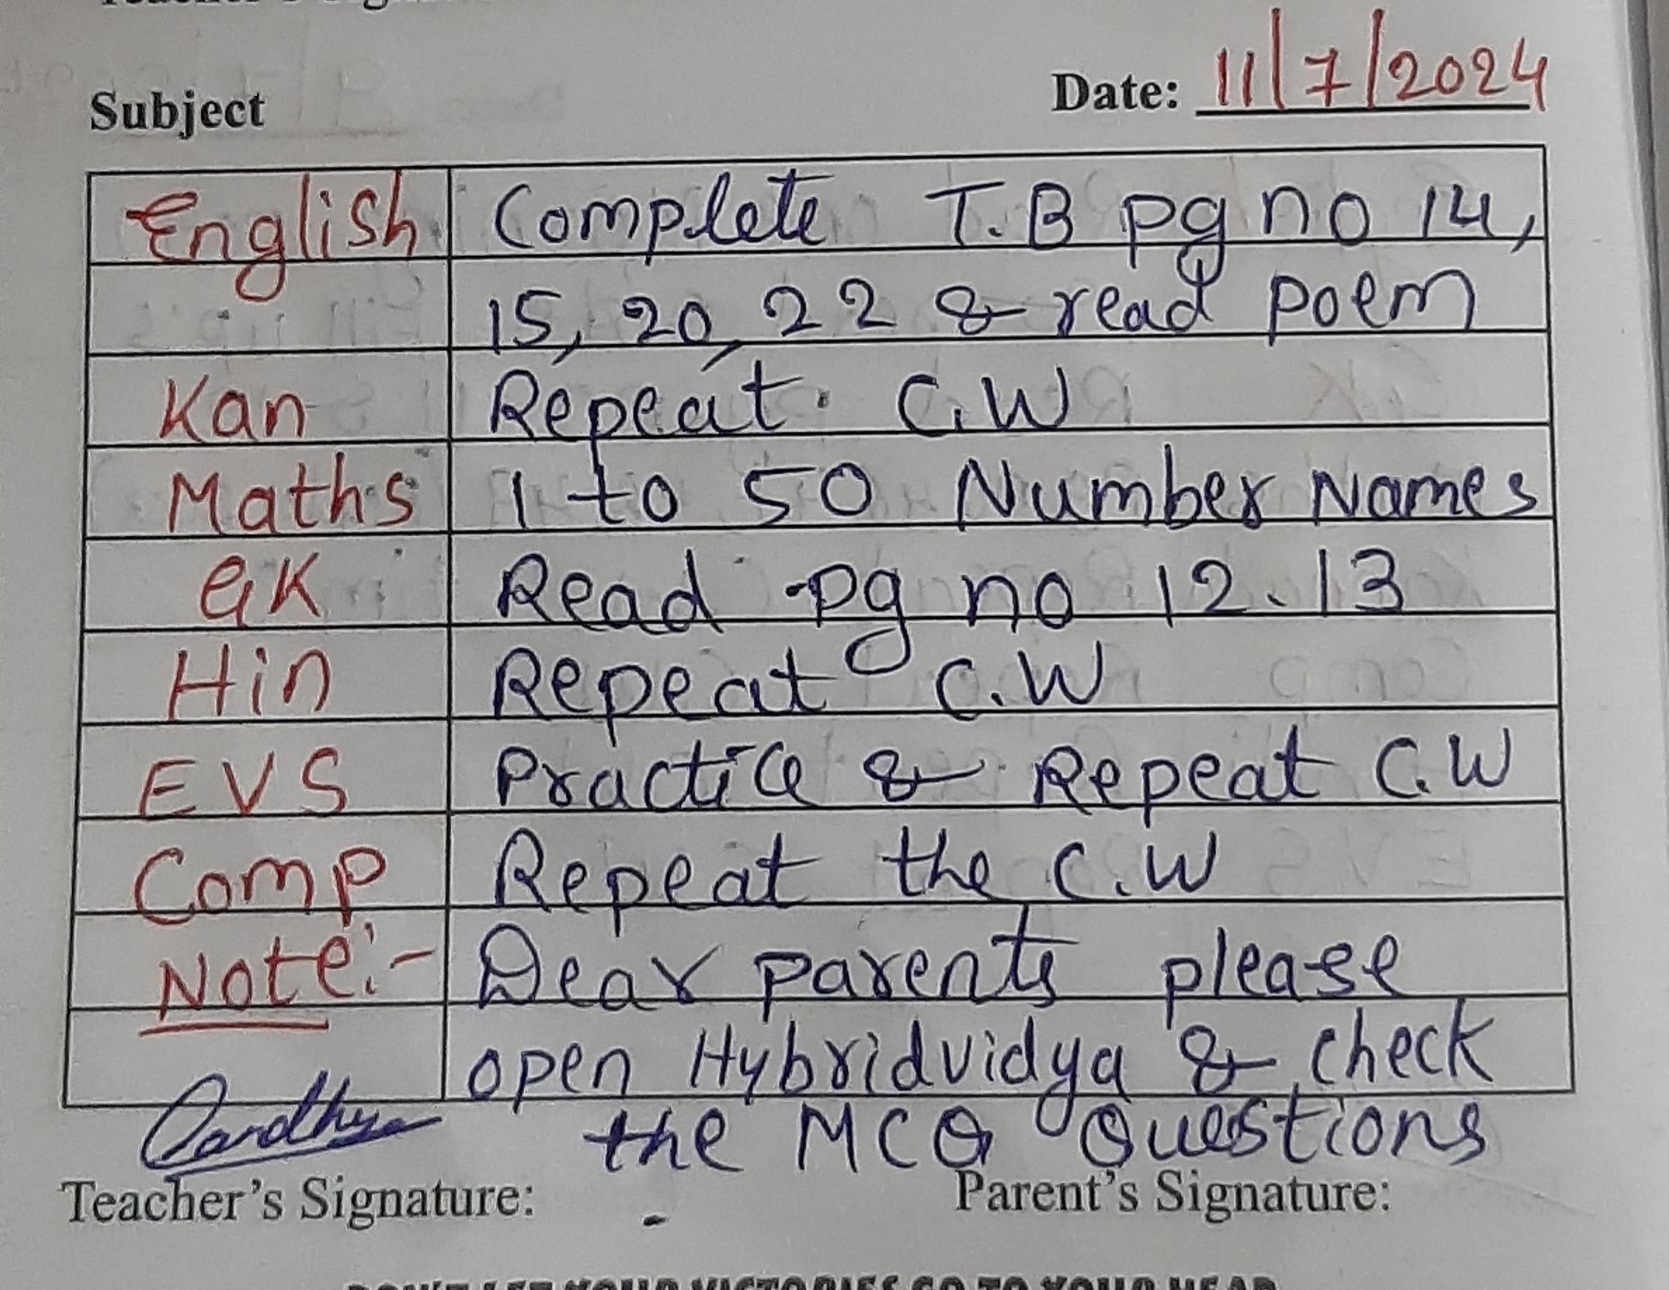 Subject Date: 11/7/2024
English Complete T.B pg no 14,
15, 20, 22 & read poem
Kan Repeat C.W
Maths 1 to 50 Number Names
GK Read pg no 12.13
Hin Repeat C.W
EVS Practice & Repeat C.W
Comp Repeat the C.W
Note:- Dear parents please
open Hybridvidya & check
the MCQ Questions
Teacher's Signature: Parent's Signature: